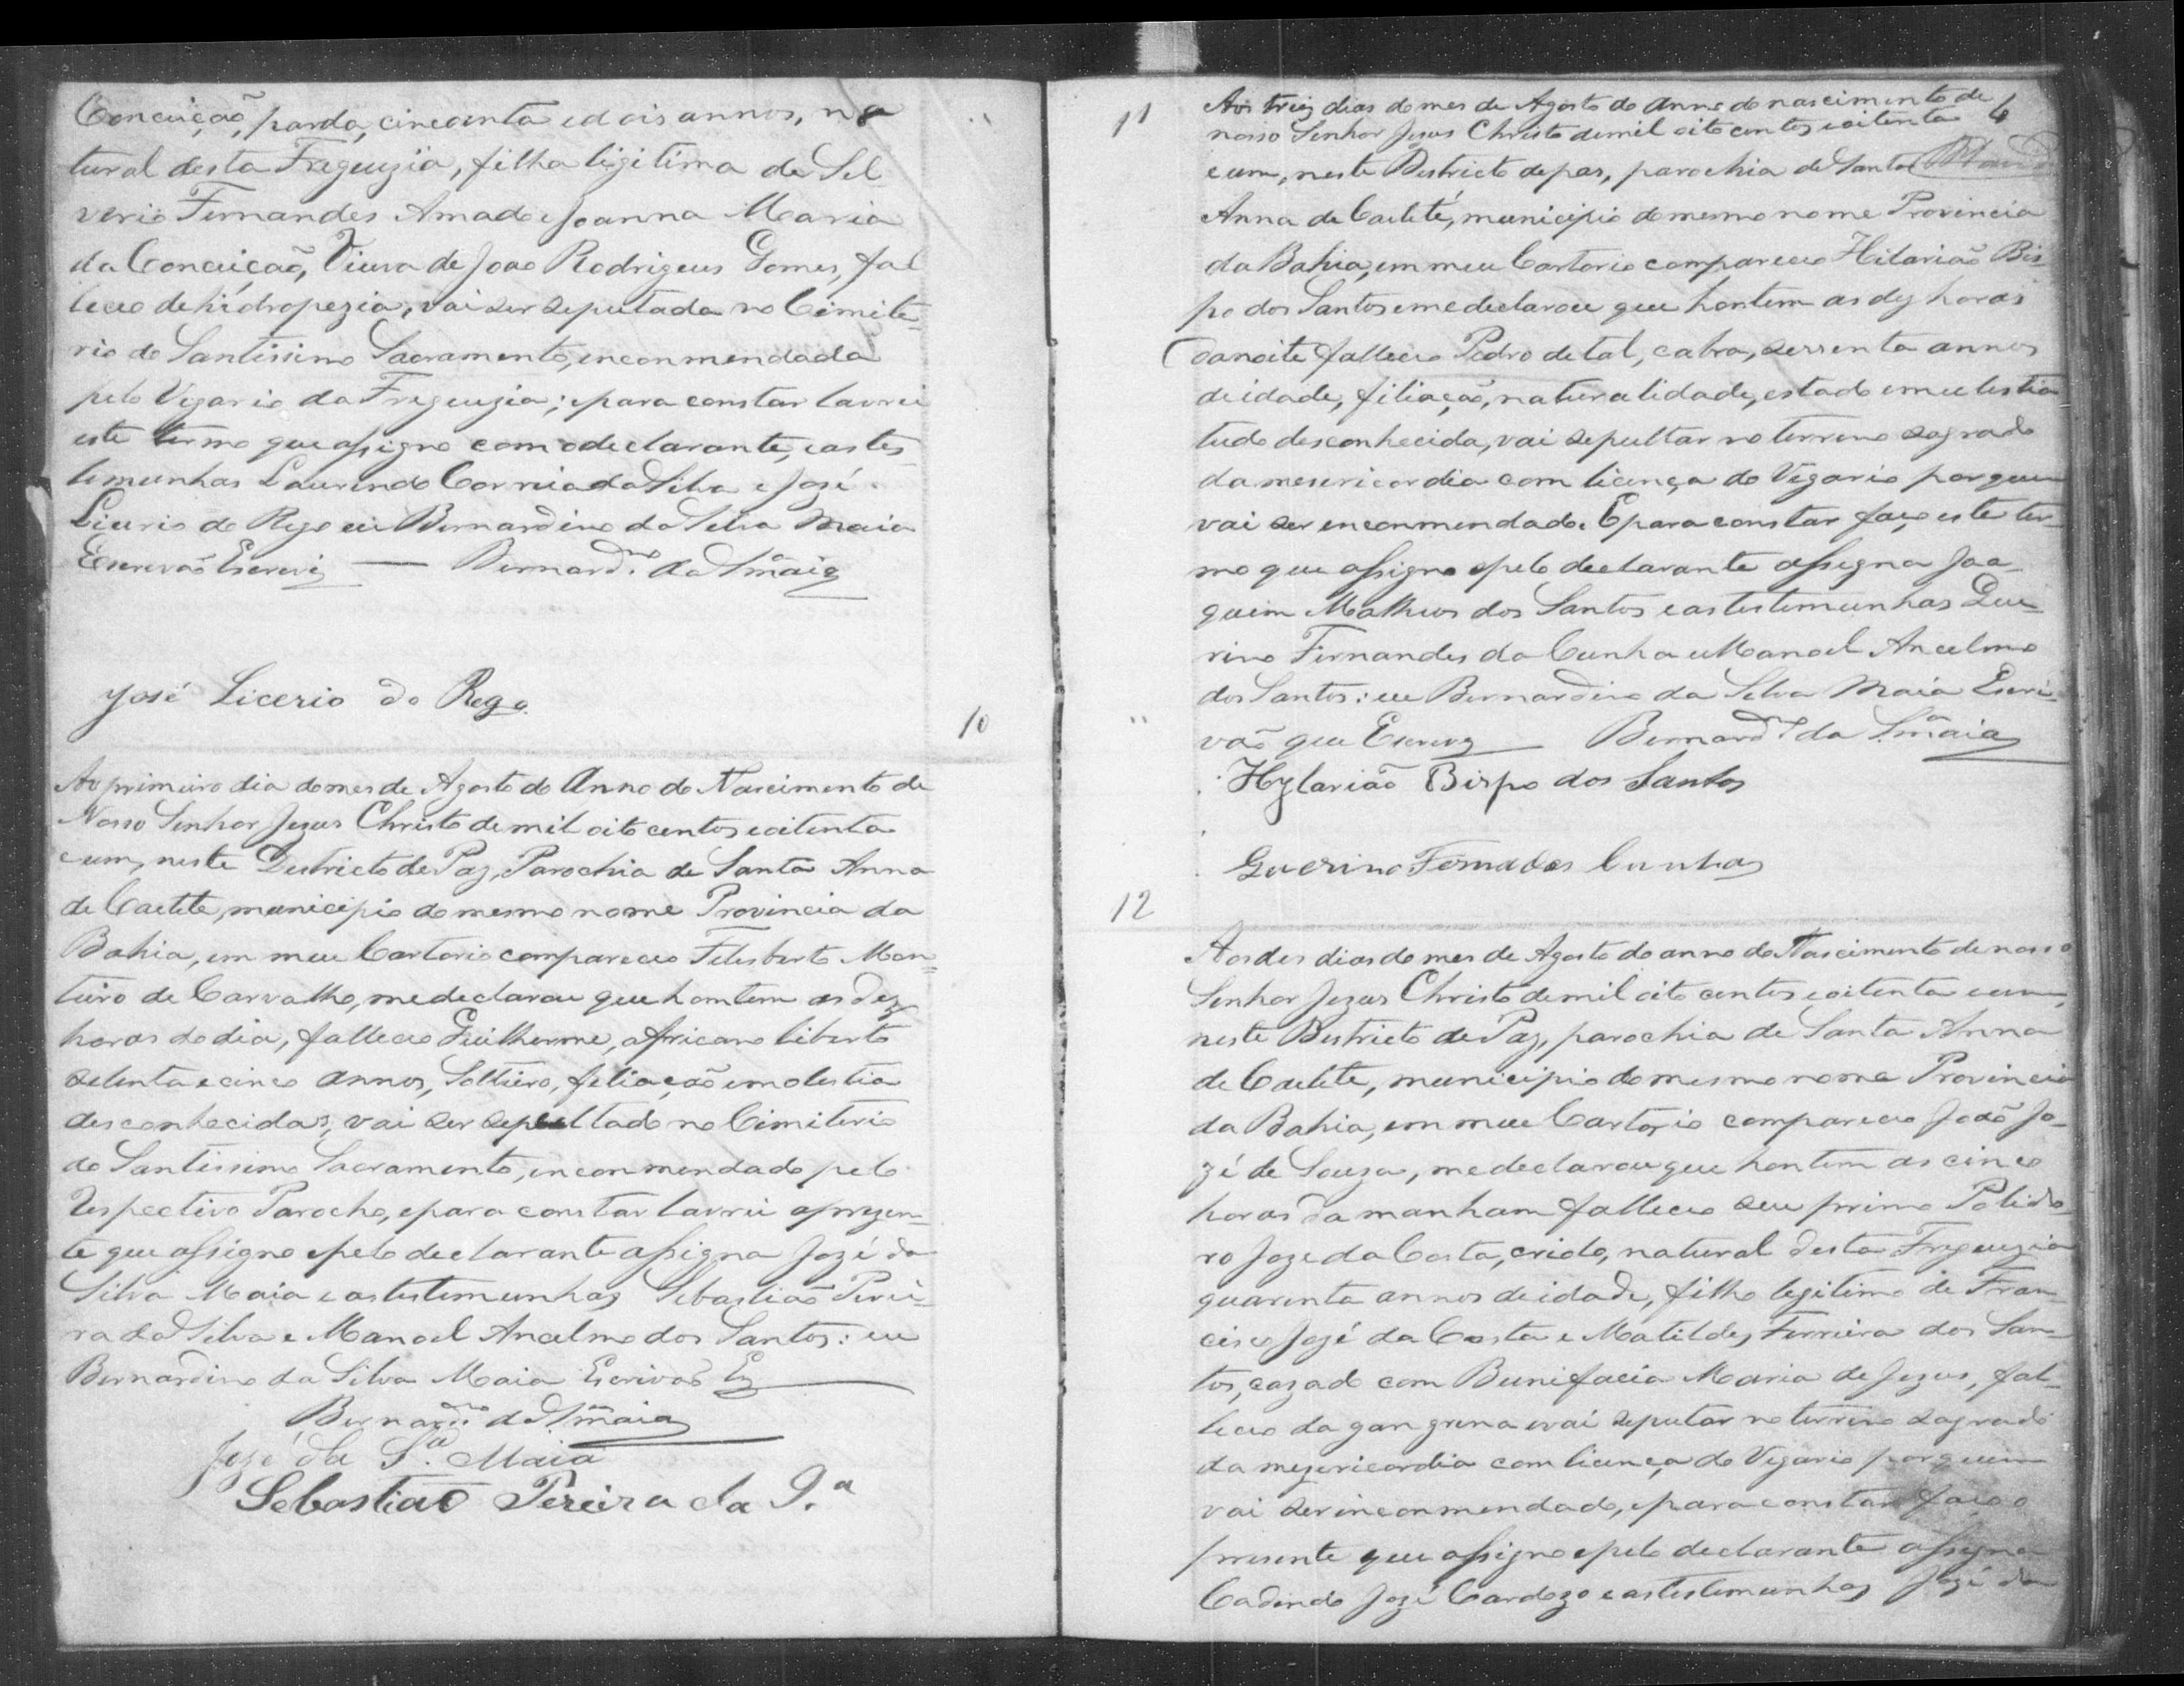 Conceição, parda, cincoenta e dois annos, na
tural desta Freguezia, filha ligitima de Sil
verio Fernandes Amado e Joanna Maria
da Conceição, Viuva de Joao Rodrigues Gomes, fal
leceo de hidropezia, vai ser seputada no Cimite
rio do Santissimo Sacramento, enconmendada
pelo Vigario da Freguezia; e para constar lavrei
este termo que assigno com o declarante, e as tes
temunhas Laurindo Correia da Silva e José
Licerio do Rego eu Bernardino da Silva Maia
Escrivão Escrevi — Bernard.no da S.a Maia
José Licerio do Rego
10
Ao primeiro dia do mes de Agosto do Anno do Nascimento de
Nosso Senhor Jezus Christo de mil oito centos e oitenta
e um, neste Destricto de Paz, Parochia de Santa Anna
de Caetite, municipio do mesmo nome Provincia da
Bahia, em meu Cartorio compareceo Felisberto Mon
teiro de Carvalho, me declarou que hontem as dez
horas do dia, falleceo Guilherme, africano liberto
setenta e cinco annos, Solteiro, filiação e molestia
desconhecidas, vai ser sepultado no Cimiterio
do Santissimo Sacramento, enconmendado pelo
Respectivo Parocho, e para constar lavrei o prezen
te que assigno e pelo declarante assigna Jozé da
Silva Maia e as testemunhas Sebastião Perei
ra da Silva e Manoel Ancelmo dos Santos: eu
Bernardino da Silva Maia Escrivão Ez
Bernard.no da S.a Maia
Jozé da S.a Maia
Sebastiao Pereira da S.a
4
11
Aos treis dias do mes de Agosto do Anno do nascimento de
nosso Senhor Jezus Christo de mil oito centos e oitenta
e um, neste Destricto de pas, parochia de Santa
Anna de Caetité, municipio do mesmo nome Provincia
da Bahia, em meu Cartorio compareceo Hilarião Bis
po dos Santos e me declarou que hontem as dez horas
da noite falleceo Pedro de tal, cabra, sessenta annos
de idade, filiação, naturalidade, estado e molestia
tudo desconhecida, vai sepultar no terreno sagrado
da mesericordia com licença do Vigario por quem
vai ser enconmendado. E para constar faço este ter
mo que assigno e pelo declarante assigna Joa
quim Matheos dos Santos e as testemunhas Que
rino Fernandes da Cunha e Manoel Ancelmo
dos Santos: eu Bernardino da Silva Maia Escri
vão que Escrevy — Bernard.no da S.a Maia
Hylarião Bispo dos Santos
Guerino Fernades Cunha
12
Aos des dias do mes de Agosto do anno do Nascimento de nosso
Senhor Jezus Christo de mil oito centos e oitenta e um,
neste Destricto de Paz, parochia de Santa Anna
de Caetite, municipio do mesmo nome Provincia
da Bahia, em meu Cartorio compareceo João Jo
zé de Souza, me declarou que hontem as cinco
horas da manham falleceo seu primo Polido
ro Joze da Costa, criolo, natural desta Freguezia
quarenta annos de idade, filho legitimo de Fran
cisco Jozé da Costa e Matildes Ferreira dos San
tos, cazado com Bunifacia Maria de Jezus, fal
leceo da gangrena e vai seputar no terreno sagrado
da mezericordia com licença do Vigario por quem
vai ser inconmendado, e para constar faço o
presente que assigno e pelo declarante assigna
Cadindo Jozé Cardozo e as testemunhas Jozé da